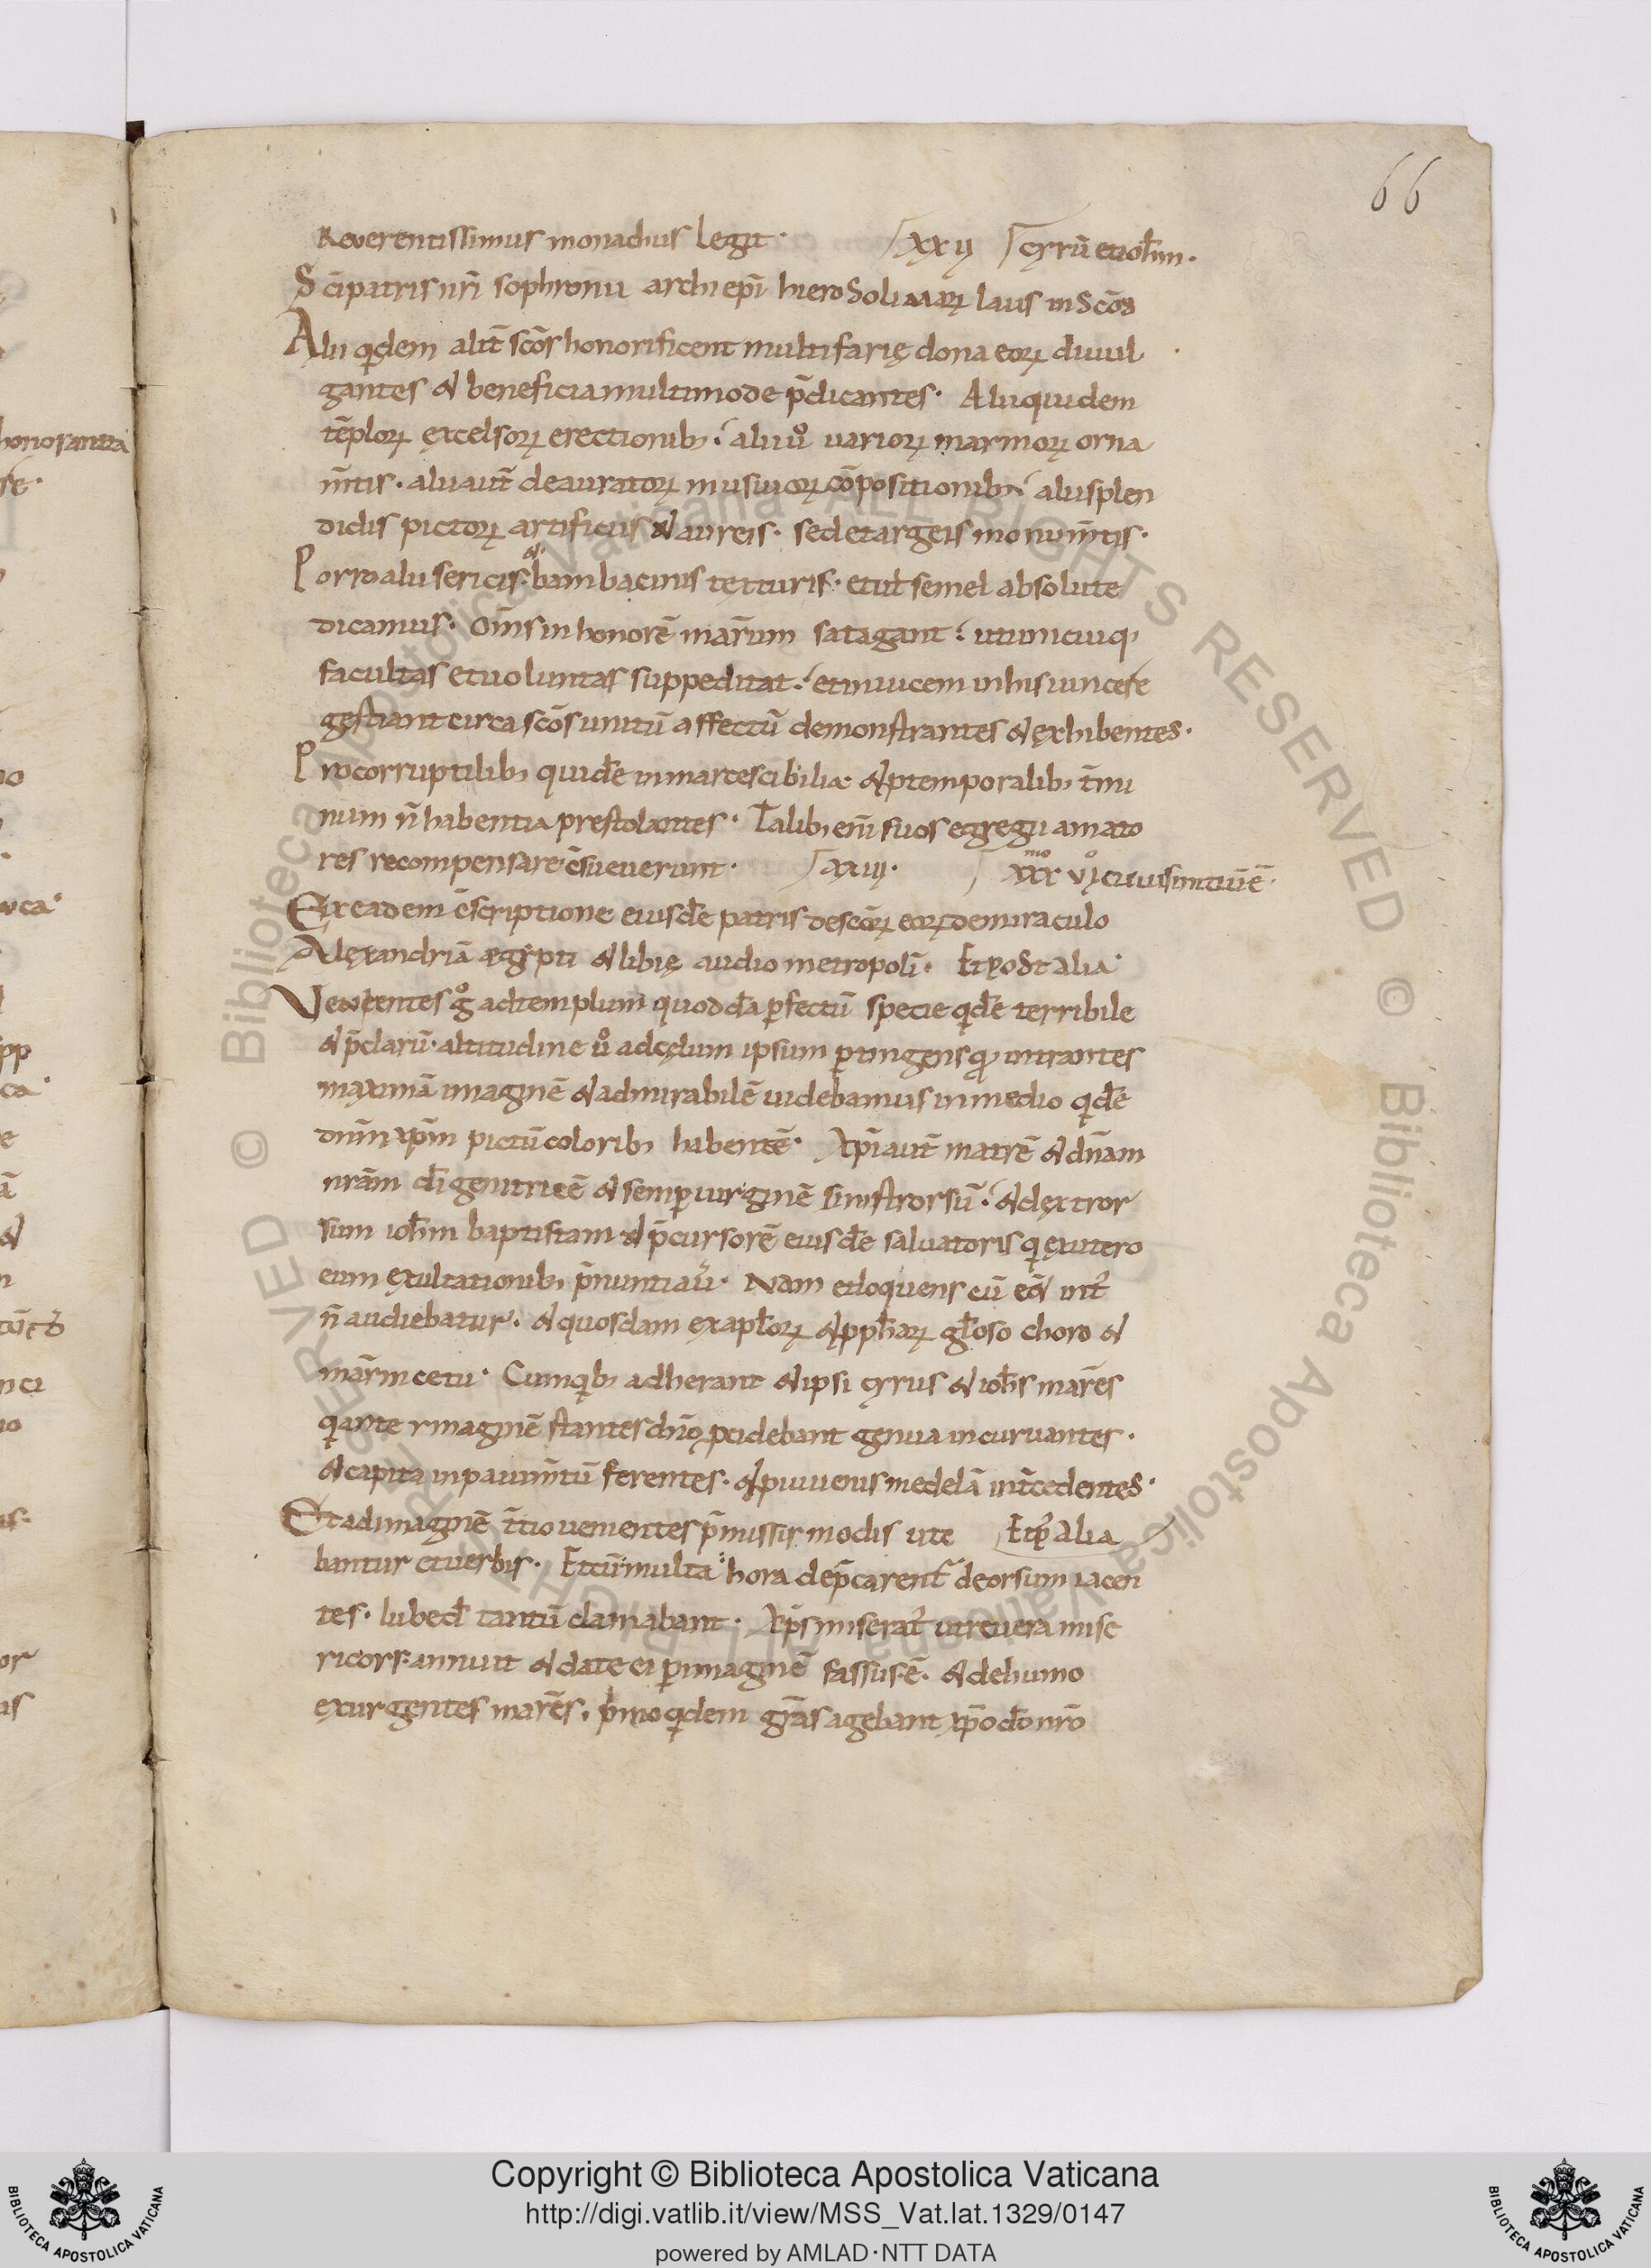 66
Reverentissimus monachus legit· xxij cyrū et ioh̄m·
Sc̄i patris nr̄i sophronii archiep̄i hierosolimaꝝ laus in sc̄os
Alii qͥdem alit̄ sc̄os honorificent multifarię dona eoꝝ diuul
gantes & beneficia multimode p̄dicantes· Alii quidem
tēploꝝ excelsoꝝ erectionib; alii uͦ uarioꝝ marmoꝝ orna
m̄tis· alii aut̄ deauratoꝝ musiuoꝝ cōpositionib; alii splen
didis pictoꝝ artificiis & aureis· sed et argeis monum̄tis·
Porro alii sericis· &· bambacinis texturis· et ut semel absolute
dicamus· Om̄s in honorē mar̄rum satagant· ut unicuiq;
facultas et uoluntas suppeditat· et inuicem in his uincere
gestiant circa sc̄os unitū affectū demonstrantes & exhibentes·
Pro corruptilib; quidē inmarcescibilia & ꝓ temporalib; t̄mi
num n̄ habentia prestolantes· Talib; eni suos egregii amato
res recompensare c̄sueuerunt· xxiij·
Ex eadem c̄scriptione eiusdē patris de sc̄oꝝ eoꝝdem miraculo
Alexandriā ęgypti & libię audio metropolī· Et post alia·
Venientes gͦ ad templum quoddā ꝑfectū specie qͥdē terribile
& p̄clarū· altitudine uͦ ad cęlum ipsum ꝑtingens intrantes
maximā imaginē & admirabilē uidebamus in medio qͥdē
dn̄m xp̄m pictū coloribꝫ habentē· Xp̄i aut̄ matrē & dn̄am
nr̄am d̄i genitricē & semꝑ uirginē sinistrorsū· & dextror
sum ioh̄m baptistam & p̄cursorē eiusdē saluatoris qͥ ex utero
eum exultationib; p̄nuntiau̅· Nam et loquens cū eā int̄
n̄ audiebatur· & quosdam ex apl̄oꝝ & ꝓph̄aꝝ gl̄oso choro &
mar̄rm cetu· Cum qͥb; adherant & ipsi cyrrus & ioh̄s mar̄es
qͥ ante ymaginē stantes dn̄o ꝓcidebant genua incuruantes·
& capita in pauim̄tū ferentes· & ꝓ iuuenis medelā int̄cedentes·
Et ad imaginē t̄tio uenientes p̄missis modis ute Et pͦ alia
bantur et uerbis· Et cū multa hora dep̄carent̄ deorsum iacen
tes· Iubed̄ tantū clamabant· Xp̄s miserat̄ ut reuera mise
ricors annuit & date ei ꝑ imaginē fassus ē· & de humo
exurgentes mar̄es· pͥmo qͥdem gr̄as agebant xp̄o d̄o nr̄o
Copyright © Biblioteca Apostolica Vaticana
http://digi.vatlib.it/view/MSS_Vat.lat.1329/0147
powered by AMLAD·NTT DATA